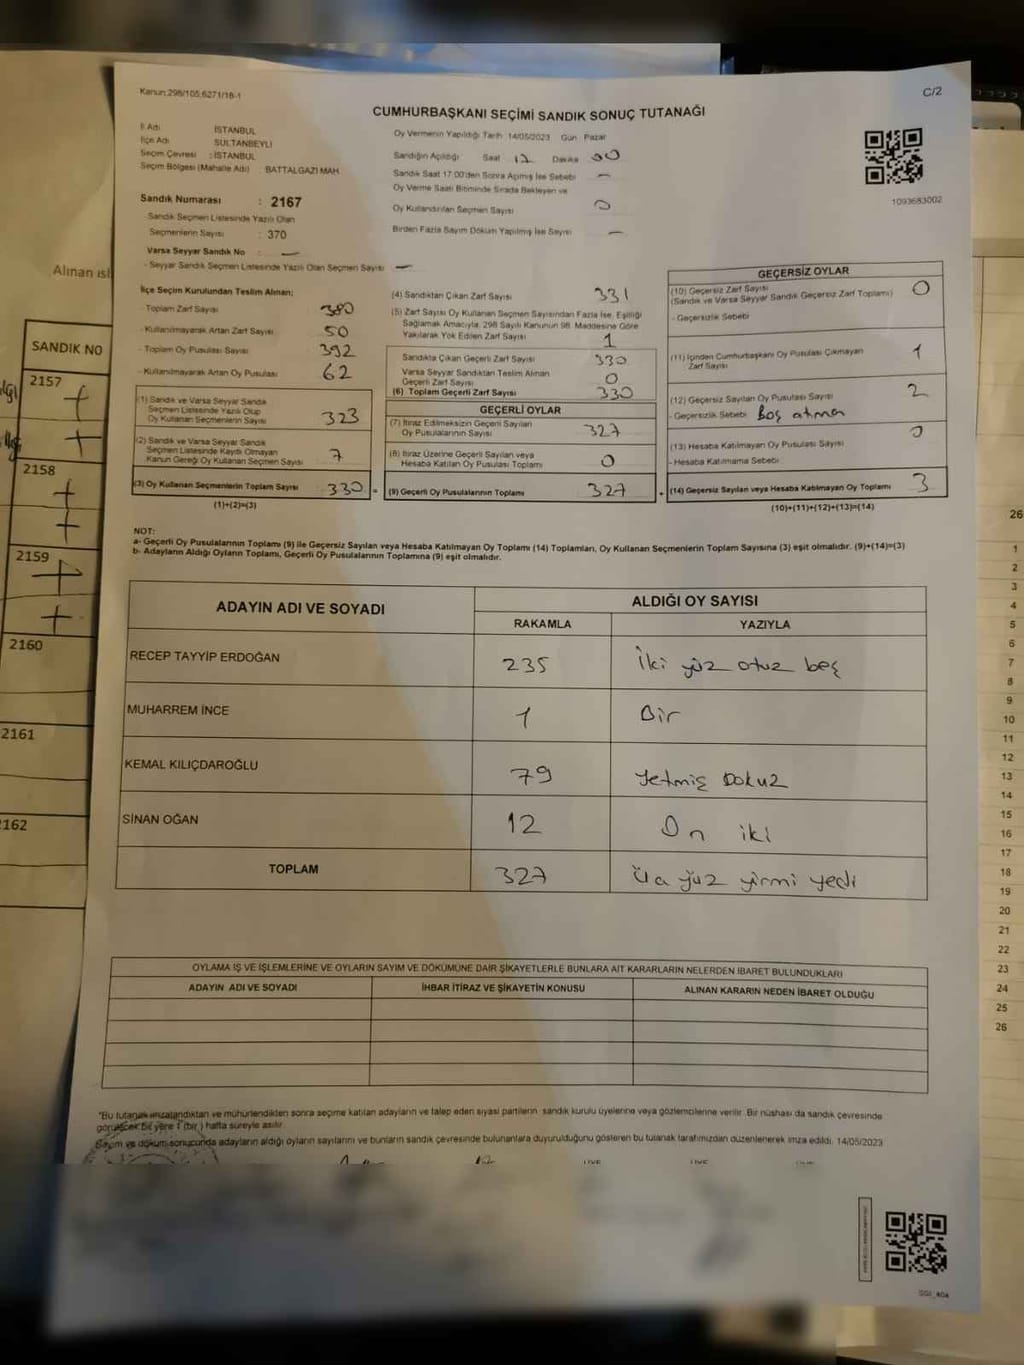 Kanun:298/105,6271/18-1
C/2
CUMHURBAŞKANI SEÇİMİ SANDIK SONUÇ TUTANAĞI
İl Adı : İSTANBUL
İlçe Adı : SULTANBEYLİ
Seçim Çevresi : İSTANBUL
Seçim Bölgesi (Mahalle Adı) : BATTALGAZİ MAH.
Sandık Numarası : 2167
Sandık Seçmen Listesinde Yazılı Olan
Seçmenlerin Sayısı : 370
Varsa Seyyar Sandık No : —
- Seyyar Sandık Seçmen Listesinde Yazılı Olan Seçmen Sayısı —
Oy Vermenin Yapıldığı Tarih 14/05/2023 Gün Pazar
Sandığın Açıldığı Saat 17 Dakika 00
Sandık Saat 17.00'den Sonra Açılmış İse Sebebi —
Oy Verme Saati Bitiminde Sırada Bekleyen ve
Oy Kullandırılan Seçmen Sayısı 0
Birden Fazla Sayım Döküm Yapılmış İse Sayısı —
1093683002
İlçe Seçim Kurulundan Teslim Alınan;
- Toplam Zarf Sayısı 380
- Kullanılmayarak Artan Zarf Sayısı 50
- Toplam Oy Pusulası Sayısı 392
- Kullanılmayarak Artan Oy Pusulası 62
(1) Sandık ve Varsa Seyyar Sandık
Seçmen Listesinde Yazılı Olup
Oy Kullanan Seçmenlerin Sayısı 323
(2) Sandık ve Varsa Seyyar Sandık
Seçmen Listesinde Kayıtlı Olmayan
Kanun Gereği Oy Kullanan Seçmen Sayısı 7
(3) Oy Kullanan Seçmenlerin Toplam Sayısı 330 =
(1)+(2)=(3)
(4) Sandıktan Çıkan Zarf Sayısı 331
(5) Zarf Sayısı Oy Kullanan Seçmen Sayısından Fazla İse, Eşitliği
Sağlamak Amacıyla, 298 Sayılı Kanunun 98. Maddesine Göre
Yakılarak Yok Edilen Zarf Sayısı 1
Sandıkta Çıkan Geçerli Zarf Sayısı 330
Varsa Seyyar Sandıktan Teslim Alınan
Geçerli Zarf Sayısı 0
(6) Toplam Geçerli Zarf Sayısı 330
GEÇERLİ OYLAR
(7) İtiraz Edilmeksizin Geçerli Sayılan
Oy Pusulalarının Sayısı 327
(8) İtiraz Üzerine Geçerli Sayılan veya
Hesaba Katılan Oy Pusulası Toplamı 0
(9) Geçerli Oy Pusulalarının Toplamı 327 +
GEÇERSİZ OYLAR
(10) Geçersiz Zarf Sayısı 0
(Sandık ve Varsa Seyyar Sandık Geçersiz Zarf Toplamı)
- Geçersizlik Sebebi
(11) İçinden Cumhurbaşkanı Oy Pusulası Çıkmayan
Zarf Sayısı 1
(12) Geçersiz Sayılan Oy Pusulası Sayısı 2
- Geçersizlik Sebebi Boş atma
(13) Hesaba Katılmayan Oy Pusulası Sayısı 0
- Hesaba Katılmama Sebebi
(14) Geçersiz Sayılan veya Hesaba Katılmayan Oy Toplamı 3
(10)+(11)+(12)+(13)=(14)
NOT:
a- Geçerli Oy Pusulalarının Toplamı (9) ile Geçersiz Sayılan veya Hesaba Katılmayan Oy Toplamı (14) Toplamları, Oy Kullanan Seçmenlerin Toplam Sayısına (3) eşit olmalıdır. (9)+(14)=(3)
b- Adayların Aldığı Oyların Toplamı, Geçerli Oy Pusulalarının Toplamına (9) eşit olmalıdır.
ADAYIN ADI VE SOYADI
ALDIĞI OY SAYISI
RAKAMLA YAZIYLA
RECEP TAYYİP ERDOĞAN 235 İki yüz otuz beş
MUHARREM İNCE 1 Bir
KEMAL KILIÇDAROĞLU 79 Yetmiş Dokuz
SİNAN OĞAN 12 On iki
TOPLAM 327 Üç yüz yirmi yedi
OYLAMA İŞ VE İŞLEMLERİNE VE OYLARIN SAYIM VE DÖKÜMÜNE DAİR ŞİKAYETLERLE BUNLARA AİT KARARLARIN NELERDEN İBARET BULUNDUKLARI
ADAYIN ADI VE SOYADI İHBAR İTİRAZ VE ŞİKAYETİN KONUSU ALINAN KARARIN NEDEN İBARET OLDUĞU
"Bu tutanak imzalandıktan ve mühürlendikten sonra seçime katılan adayların ve talep eden siyasi partilerin sandık kurulu üyelerine veya gözlemcilerine verilir. Bir nüshası da sandık çevresinde
görülecek bir yere 1 (bir) hafta süreyle asılır.
Sayım ve döküm sonucunda adayların aldığı oyların sayılarını ve bunların sandık çevresinde bulunanlara duyurulduğunu gösteren bu tutanak tarafımızdan düzenlenerek imza edildi. 14/05/2023
Alınan
SANDIK NO
2157
2158
2159
2160
2161
2162
26
1
2
3
4
5
6
7
8
9
10
11
12
13
14
15
16
17
18
19
20
21
22
23
24
25
26